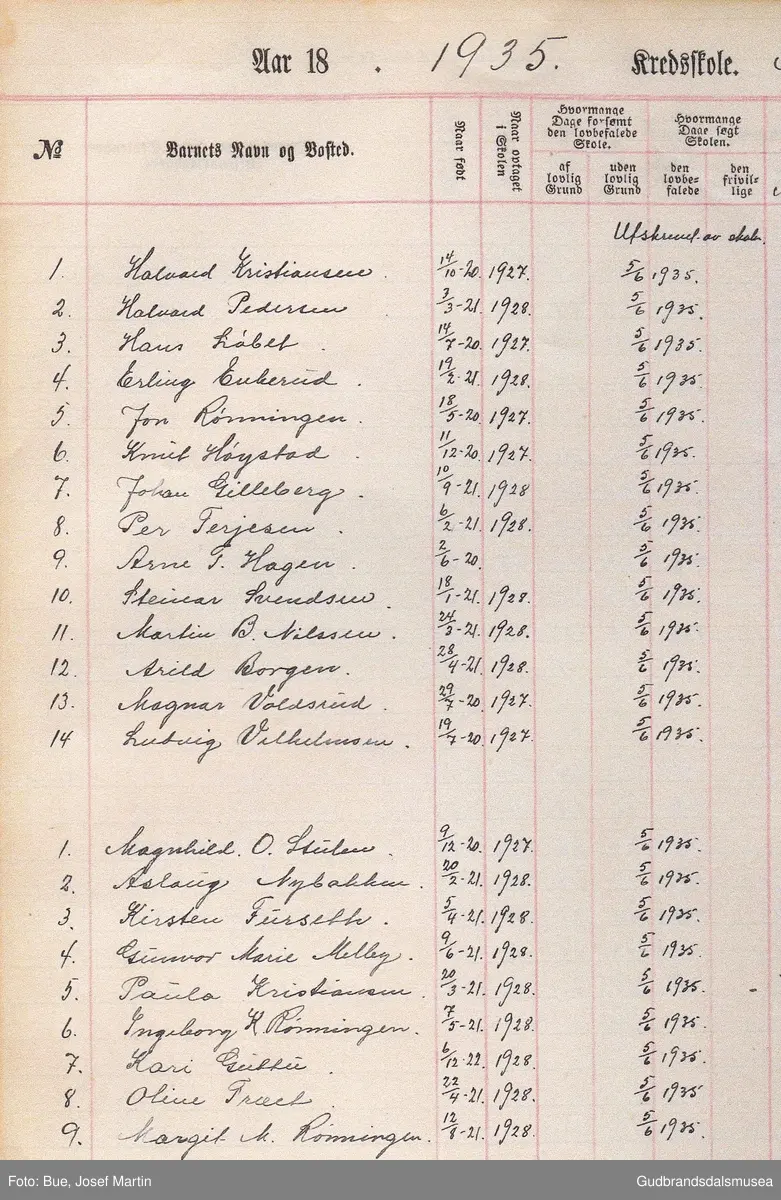 Aar 18 . 1935. Kredsskole.
№ Barnets Navn og Bosted. Naar født Naar optaget i Skolen Hvormange Dage forsømt den lovbefalede Skole. Hvormange Dage søgt Skolen.
af lovlig Grund uden lovlig Grund den lovbefalede den frivillige
Utskrevet av skolen.
1. Halvard Kristiansen. 14/10-20. 1927. 5/6 1935.
2. Halvard Pedersen. 3/3-21. 1928. 5/6 1935.
3. Hans Løbet. 14/7-20. 1927. 5/6 1935.
4. Erling Enberud. 19/2-21. 1928. 5/6 1935.
5. Jon Rønningen. 18/5-20. 1927. 5/6 1935.
6. Knut Høystad. 11/12-20. 1927. 5/6 1935.
7. Johan Gilleberg. 10/9-21. 1928 5/6 1935.
8. Per Terjesen. 6/2-21. 1928. 5/6 1935.
9. Arne T. Hagen. 2/6-20. 5/6 1935.
10. Steinar Svendsen. 18/1-21. 1928. 5/6 1935.
11. Martin B. Nilssen. 24/3-21. 1928. 5/6 1935.
12. Arild Borgen. 28/4-21. 1928. 5/6 1935.
13. Magnar Voldsrud. 29/7-20. 1927. 5/6 1935.
14 Ludvig Vilhelmsen. 19/7-20. 1927. 5/6 1935.
1. Magnhild. O. Stulen. 9/12-20. 1927. 5/6 1935.
2. Aslaug Nybakken. 20/2-21. 1928. 5/6 1935.
3. Kirsten Furseth. 5/4-21. 1928. 5/6 1935.
4. Gunvor Marie Melby. 9/6-21. 1928. 5/6 1935.
5. Paula Kristiansen. 20/3-21. 1928. 5/6 1935.
6. Ingeborg K. Rønningen. 7/5-21. 1928. 5/6 1935.
7. Kari Guttu. 6/12-22. 1928. 5/6 1935.
8. Oline Træet. 22/4-21. 1928. 5/6 1935.
9. Margit M. Rønningen. 12/8-21. 1928. 5/6 1935.
Foto: Bue, Josef Martin Gudbrandsdalsmusea